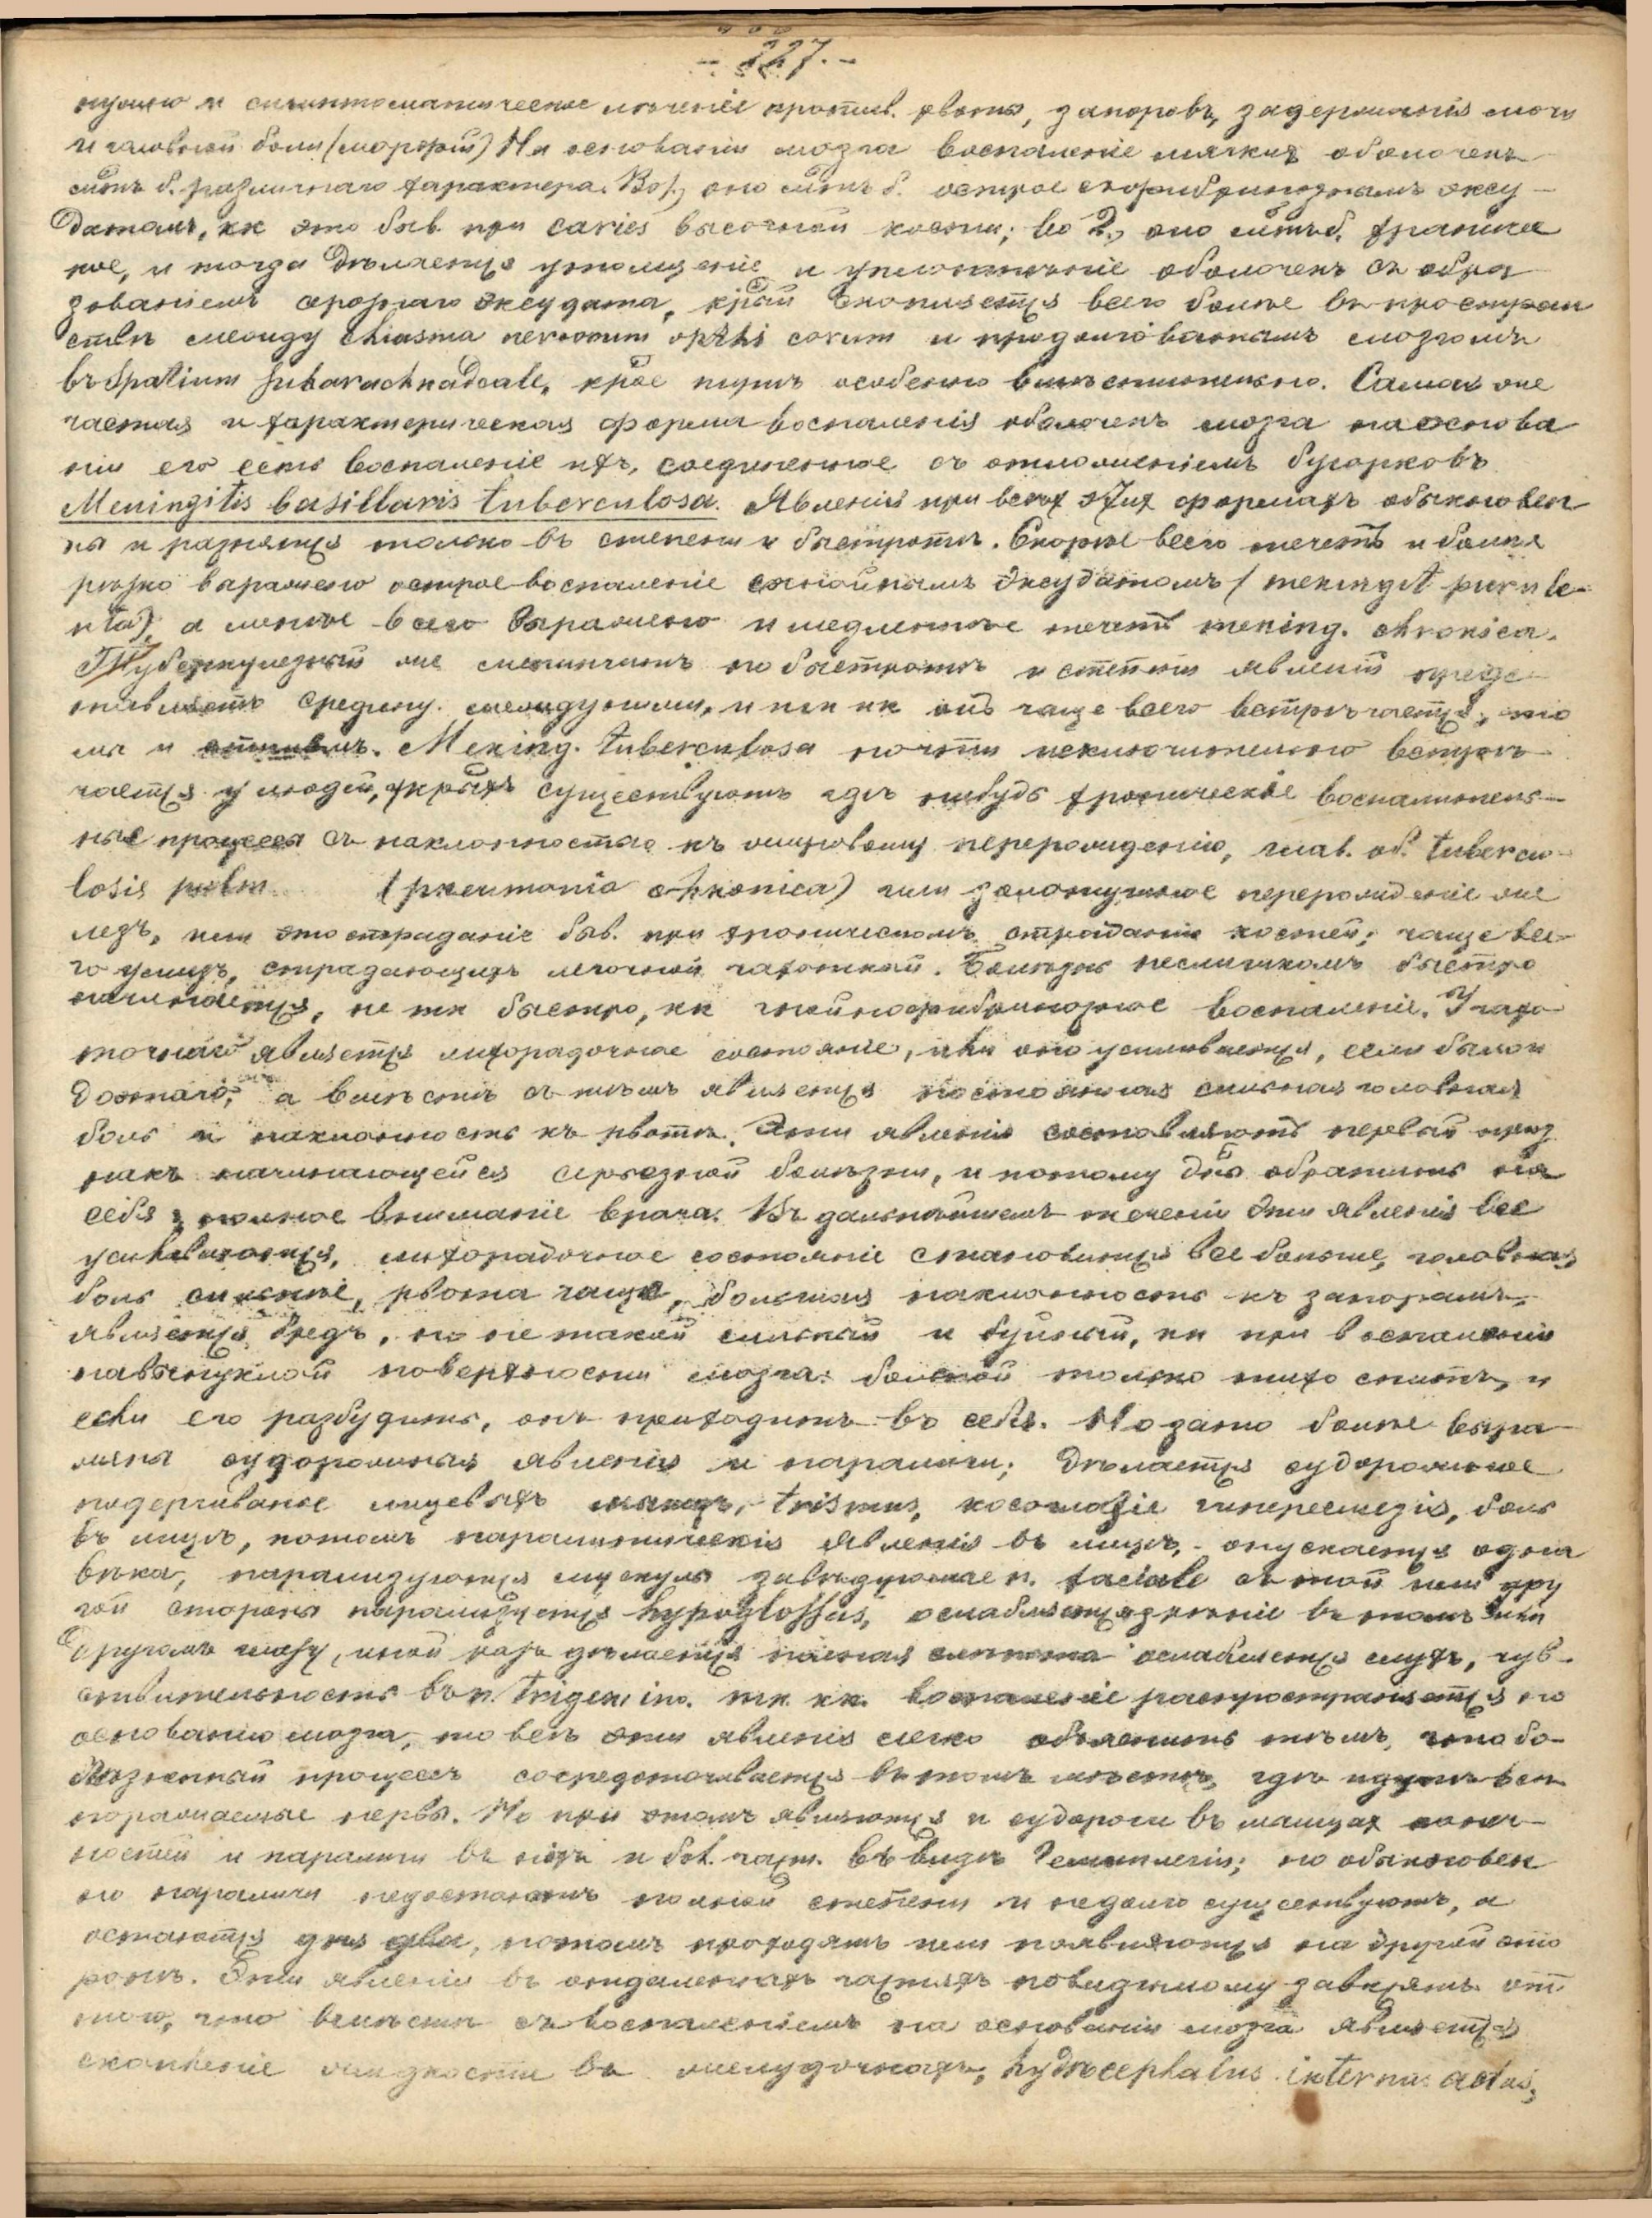 - 227. -
нужно и симптоматическое лѣченіе против. рвоты, запоровъ, задержанія мочи
и головной боли (морфій) На основаніи мозга воспаленіе мягкихъ оболочекъ
м. б. различнаго характера. Во 1, оно м. б. острое съ фибринознымъ эксу-
датомъ, кк это быв. при caries височной кости; во 2, оно м. б. хрониче
кое, и тогда дѣлается утолщеніе и уплотнѣніе оболочекъ съ обра
зованіемъ серознаго эксудата, крый скопляется всего болѣе въ простран
ствѣ между chiasma nervorum opthi corum и продолговатымъ мозгомъ
въ Spatium subarachnadeale, крое тутъ особенно вмѣстительно. Самая же
частая и характерическая форма воспаленія оболочекъ мозга на основа
ніи его есть воспаленіе ихъ, соединенное съ отложеніемъ бугорковъ
Meningitis basillaris tuberculosa. Явленія при всѣхъ этих формахъ обыкновен-
ны и разнятся только въ степени и быстротѣ. Скорѣе всего течетъ и болѣе
рѣзко выражено острое воспаленіе съ гнойнымъ эксудатомъ (meningit purule-
nta), а менѣе всего выражено и медленнѣе течетъ mening. chronica.
Туберкулезный же менингитъ по быстротѣ и степени явленій пред-
ставляетъ средину между ними, и тк кк онъ чаще всего встрѣчается, то
мы и опишемъ. Mening. tuberculosa почти исключительно встрѣ-
чается у людей, у крыхъ существуютъ гдѣ нибудь хроническіе воспалитель-
ные процессы съ наклонностью къ жировому перерожденію, глав. об. tubercu-
losis pulm. (pneumonia chronica) или золотушное перерожденіе же
лезъ, или это страданіе быв. при хроническомъ страданіи костей; чаще все-
го у лицъ, страдающихъ легочной чахоткой. Болѣзнь не слишкомъ быстро
начинается, не тк быстро, кк гнойнофибринозное воспаленіе. У чахо-
точнаго является лихорадочное состояніе, или оно усиливается, если было и
до того, а вмѣстѣ съ тѣмъ является постоянная сильная головная
боль и наклонность къ рвотѣ. Эти явленія составляютъ первый приз
накъ начинающейся серьезной болѣзни, и потому дны обратить на
себя полное вниманіе врача. Въ дальнѣйшемъ теченіи эти явленія все
усиливаются, лихорадочное состояніе становится все больше, головная
боль сильнѣе, рвота чаще, большая наклонность къ запорамъ,
является бредъ, но не такой сильный и буйный, кк при воспаленіи
на выпуклой поверхности мозга: больной только тихо спитъ, и
если его разбудить, онъ приходитъ въ себя. Но зато болѣе выра
жены судорожныя явленія и параличи; дѣлается судорожное
подергиванье лицевыхъ мышцъ, trismus, косоглазіе гиперестезія, боль
въ лицѣ, потомъ паралитическія явленія въ лицѣ, - опускаются одна
вѣка, парализуются мускулы завѣдуюмые n. faciale съ той или дру
гой стороны парализуется hypoglossus, ослабляется зрѣніе въ томъ или
другомъ глазу, иной разъ дѣлается полная слѣпота ослабляется слухъ, чув-
ствительность въ n. trigemino. тк. кк. воспаленіе распространяется по
основанію мозга, то всѣ эти явленія легко объяснить тѣмъ, что бо-
лѣзненный процессъ сосредоточивается въ томъ мѣстѣ, гдѣ идутъ всѣ
поражаемые нервы. Но при этомъ являются и судороги въ мышцах конеч-
ностей и параличи въ нихъ и бол. част. въ видѣ гемиплегіи; но обыкновен
но параличи не достигаютъ полной степени и недолго существуютъ, а
остаются дня два, потомъ проходятъ или появляются на другой сто
ронѣ. Эти явленія въ отдаленныхъ частяхъ повидимому зависятъ отъ
того, что вмѣстѣ съ воспаленіемъ на основаніи мозга является
скопленіе жидкости въ желудочкахъ, hydrocephalus internus actus,